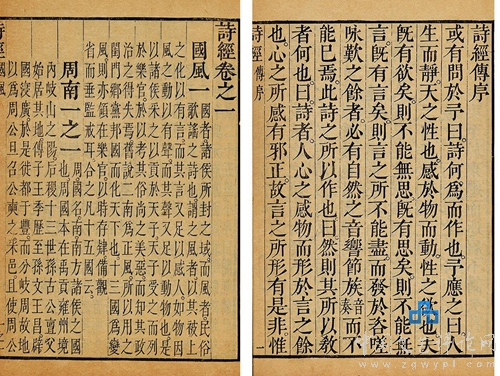 詩經傳序
或有問於予曰詩何爲而作也予應之曰人
生而靜天之性也感於物而動性之欲也夫
既有欲矣則不能無思既有思矣則不能無
言既有言矣則言之所不能盡而發於咨嗟
咏歎之餘者必有自然之音響節族音奏而不
能已焉此詩之所以作也曰然則其所以教
者何也曰詩者人心之感物而形於言之餘
也心之所感有邪正故言之所形有是非惟
詩經傳序 一
詩經卷之一
國風一
國者諸侯所封之域而風者民俗
歌謠之詩也謂之風者以其被上
之化以有言而其言又足以感人如物因
風之動以有聲而其聲又足以動物也是
以諸侯采之以貢於天子天子受之而列
於樂官於以考其俗尚之美惡而知其政
治之得失焉舊說二南爲正風所以用之
閨門鄉黨邦國而化天下也十三國爲變
風則亦領在樂官以時存肄備觀
省而垂監戒耳合之凡十五國云
周南一之一
周國名南南方諸侯之國
也周國本在禹貢雍州境
內岐山之陽后稷十三世孫古公亶父
始居其地傳子王季歷至孫文王昌辟
國寖廣於是徙都于豐而分岐周故地
以爲周公旦召公奭之采邑且使周公
詩經